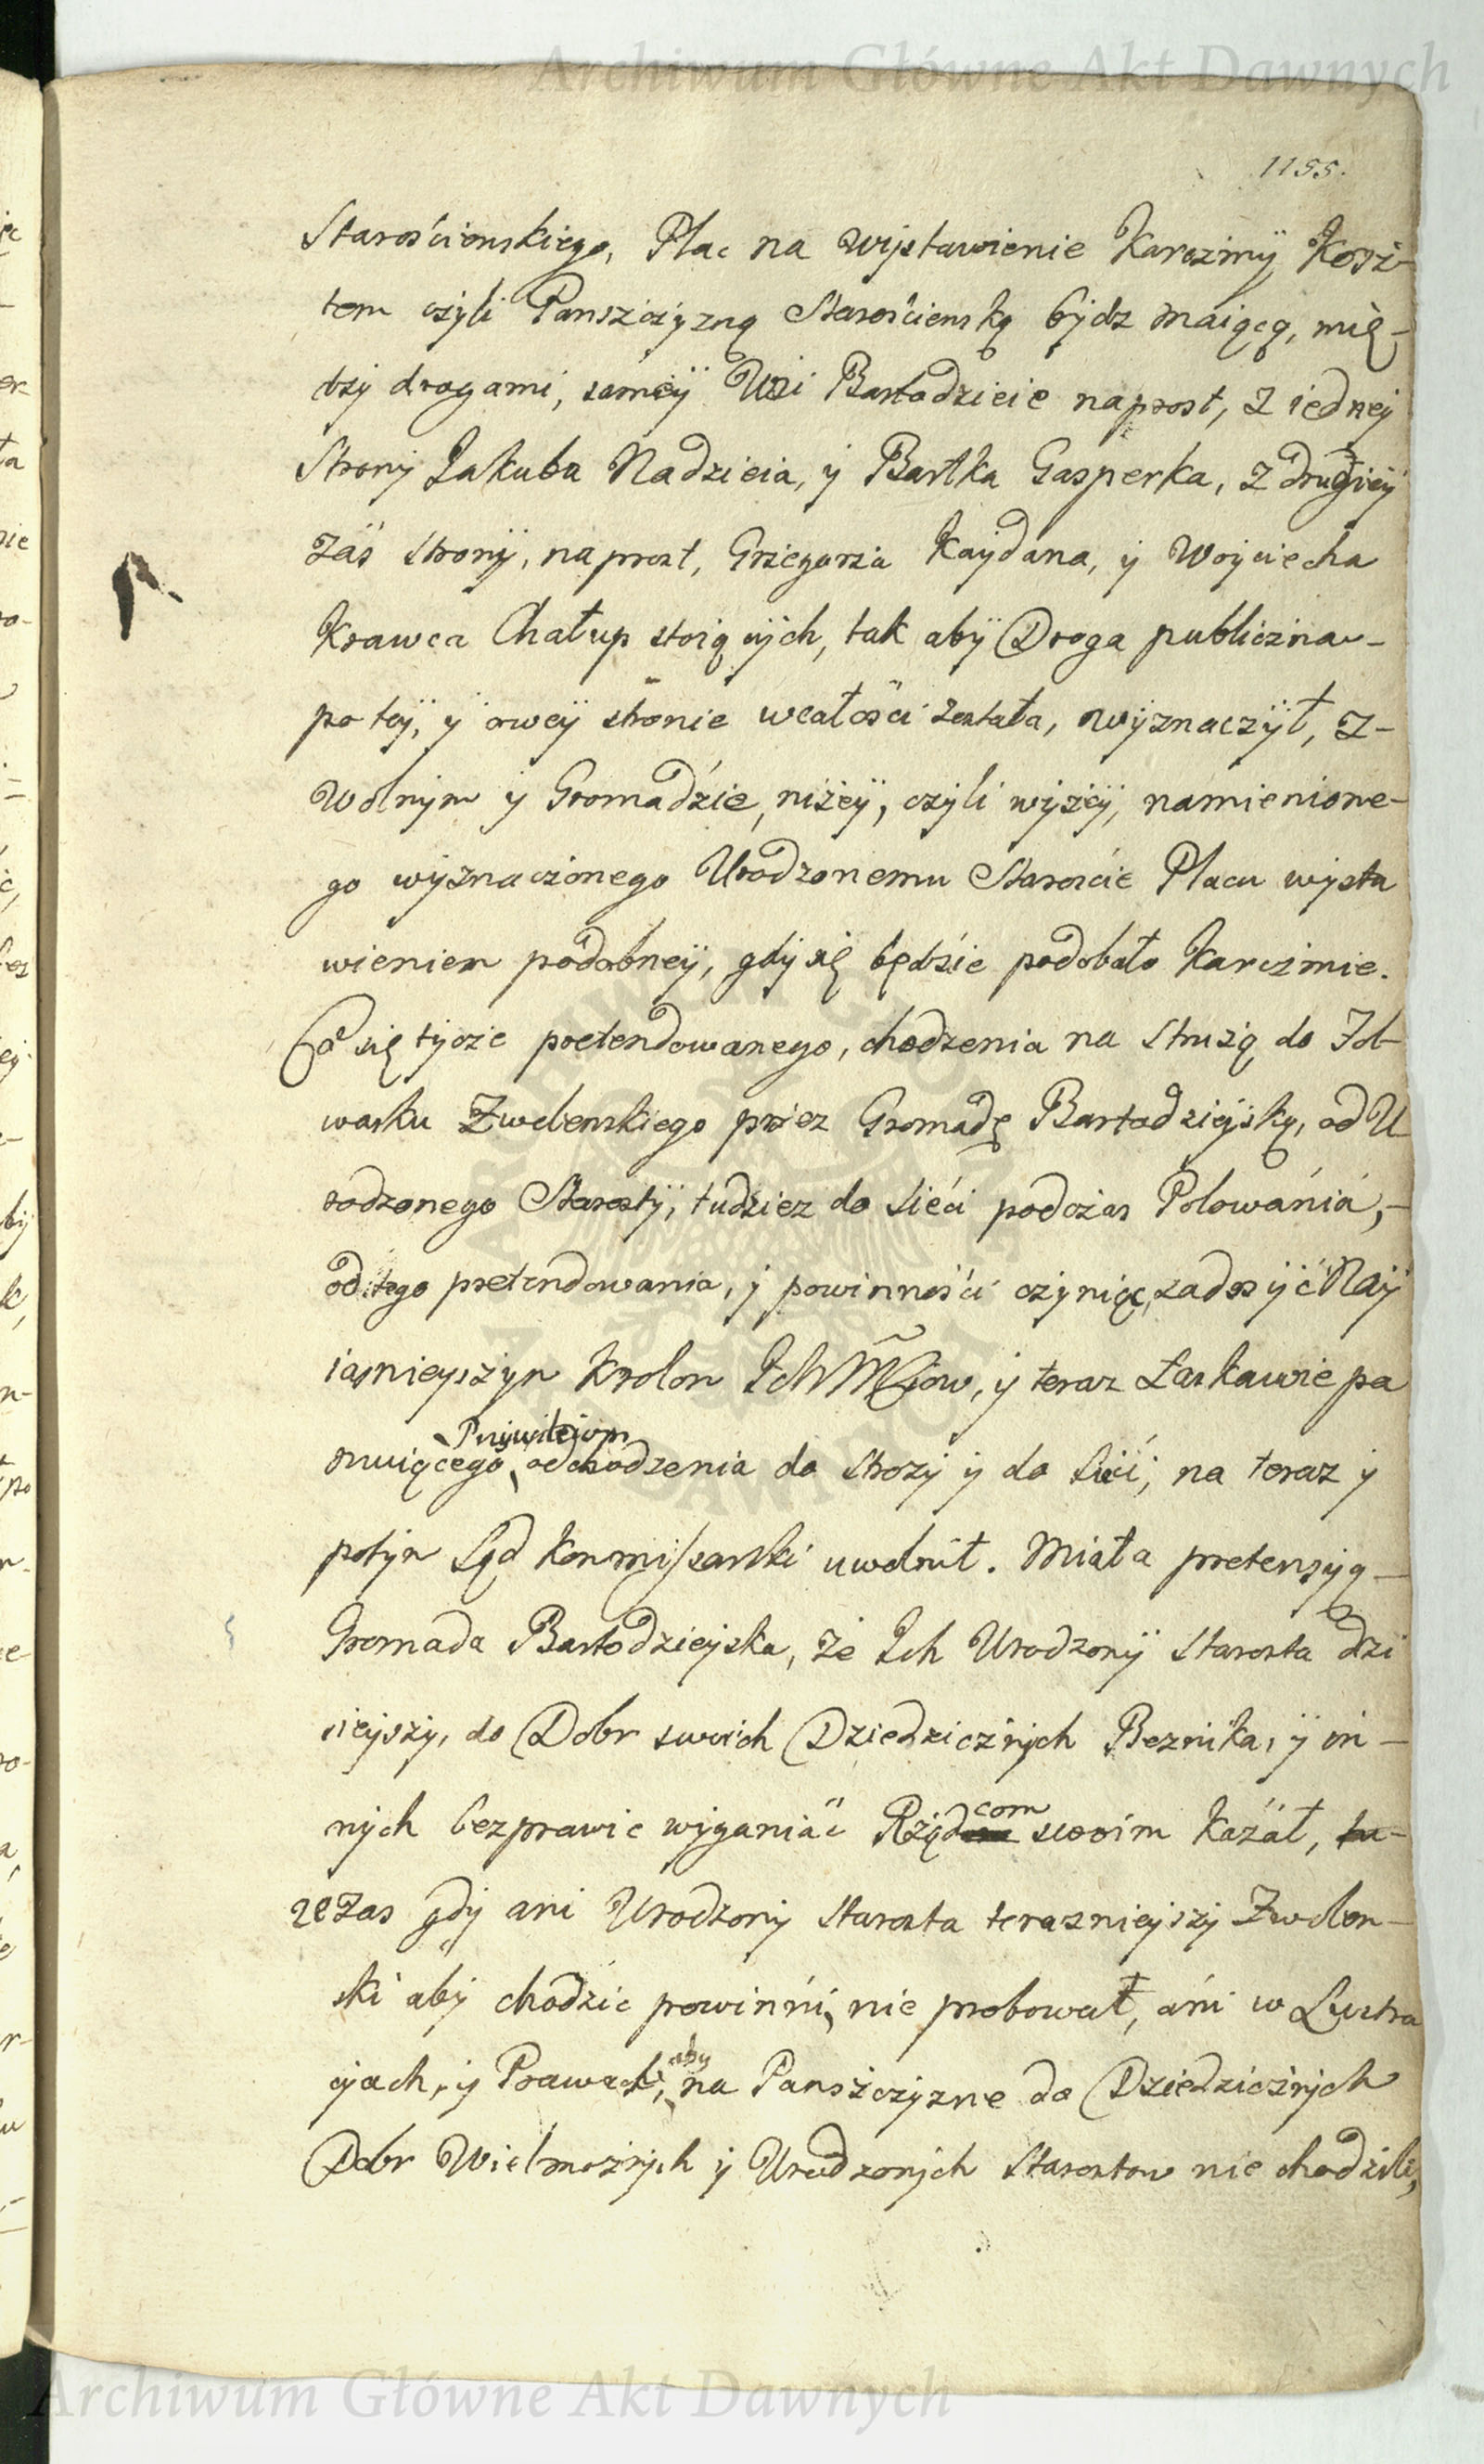 Archiwum Główne Akt Dawnych
1155.
Starościenskiego, Plac na wystawienie Karczmÿ Kosz-
tem czyli Panszczyzną Starościenską bydz maiącą, mię-
dzy drogami, sameÿ Wsi Bartodzieie naprost, z iedney
Strony Jakuba Nadzieia, y Bartka Gasperka, z drugieÿ
zaś Stronÿ, naprost, Grzegorza Kaÿdana, y Woyciecha
Krawca Chałup stoiących, tak abÿ Droga publiczna-
po teÿ, y oweÿ stronie wcałości została, wÿznaczÿł, z-
Wolnym y Gromadzie, niżeÿ, czyli wyżeÿ, namienione-
go wyznaczonego Urodzonemu Staroście Placu wysta
wieniem podobneÿ, gdy się będzie podobało Karczmie.
Co się tycze pretendowanego, chodzenia na Stużą do Fol-
warku Zwolenskiego przez Gromadę Bartodzieyską, od U
rodzonego Starostÿ, tudziez do Sieci podczas Polowania,-
od tego pretendowania, y powinności czyniąc zadosyć Naÿ
iasnieyszym Krolom Ichmciow, y teraz Łaskawie pa
nuiącego Przywileiom, od chodzenia do Stroży y do Sieci, na teraz y
potym Sąd Kommissarski uwolnił. Miała pretensyą-
Gromada Bartodzieyska, że Ich Urodzonÿ Starosta dzi
sieyszy, do Dobr swoich Dziedzicznych Beznika, ÿ in-
nych bezprawie wyganiać Rządcom swoim kazał, tu-
że zas gdy ani Urodzony Starosta teraznieyszy Zwolen-
ski aby chodzic powinni, nie probował, ani w Lustra
cyach, y Prawach, aby na Panszczyzne do Dziedzicznych
Dobr Wielmożnych y Urodzonych Starostow nie chodzili,
Archiwum Główne Akt Dawnych